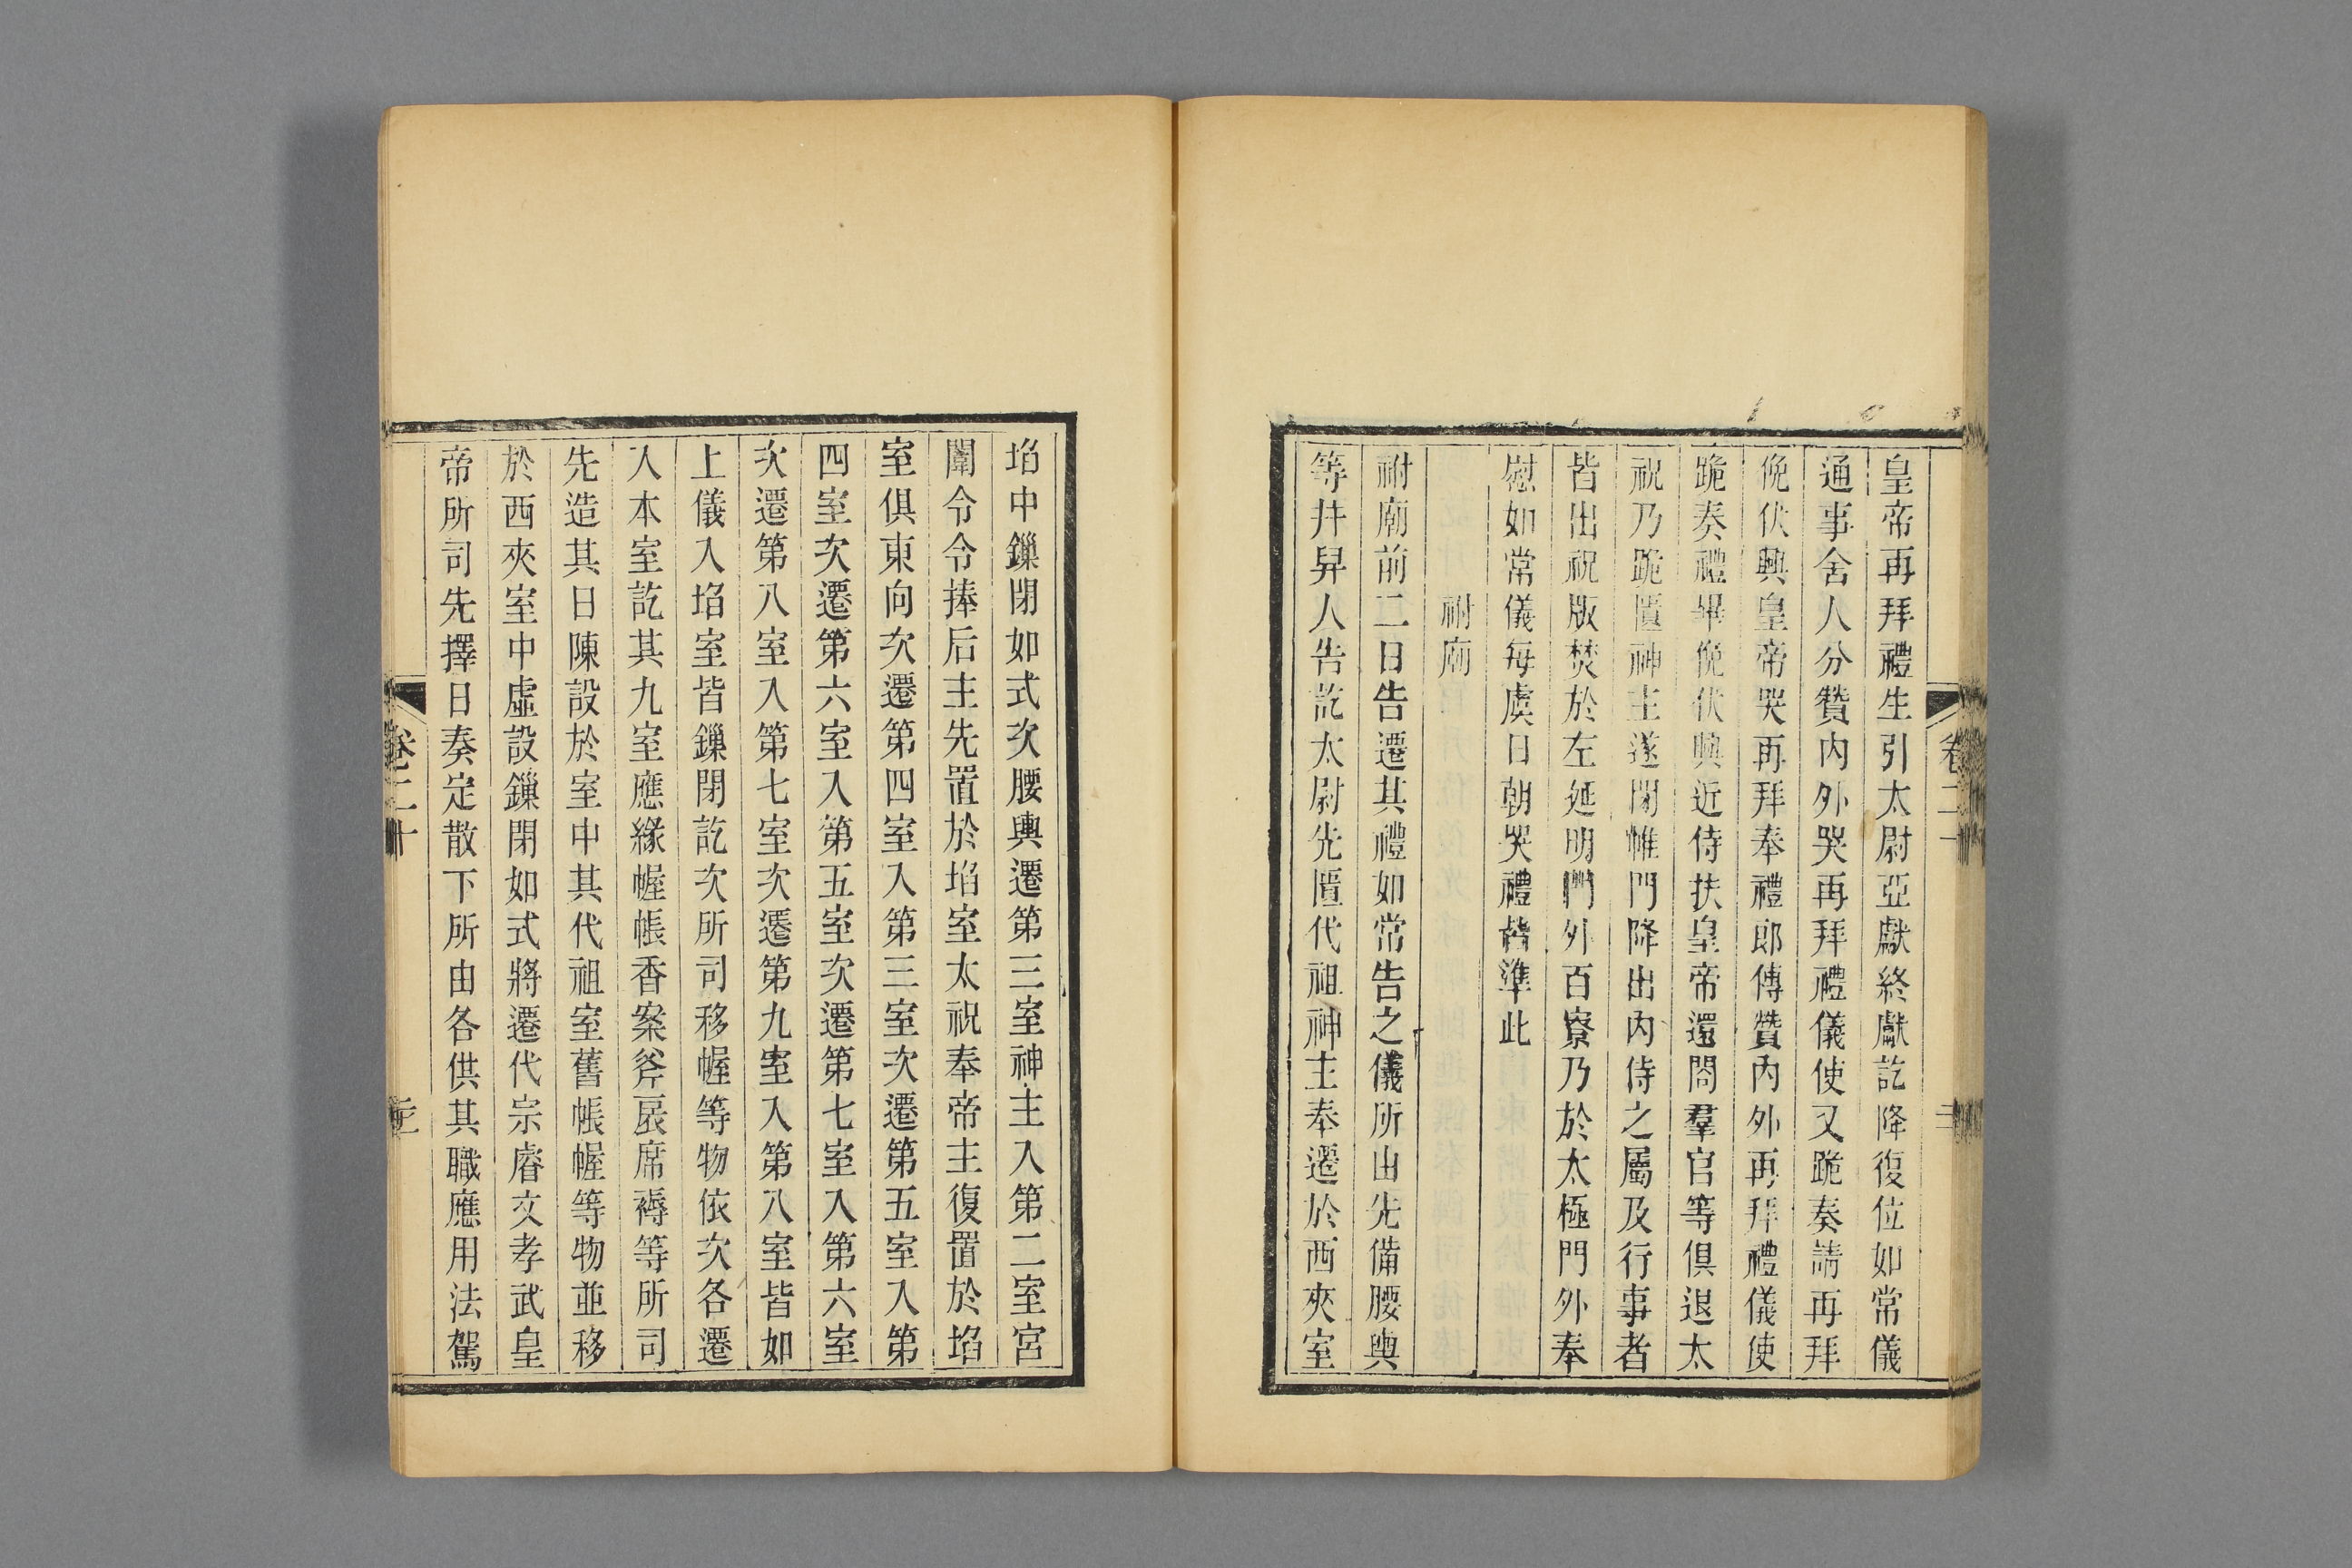 皇帝再拜禮生引太尉亞獻終獻訖降復位如常儀
通事舍人分贊內外哭再拜禮儀使又跪奏請再拜
俛伏興皇帝哭再拜奉禮郎傳贊內外再拜禮儀使
跪奏禮畢俛伏興近侍扶皇帝還閤羣官等俱退太
祝乃跪匱神主遂閉帷門降出內侍之屬及行事者
皆出祝版焚於左延明門外百寮乃於太極門外奉
慰如常儀每虞日朝哭禮皆準此
祔廟
祔廟前二日告遷其禮如常告之儀所由先備腰輿
等并舁人告訖太尉先匱代祖神主奉遷於西夾室
埳中鏁閉如式次腰輿遷第三室神主入第二室宮
闈令令捧后主先置於埳室太祝奉帝主復置於埳
室俱東向次遷第四室入第三室次遷第五室入第
四室次遷第六室入第五室次遷第七室入第六室
次遷第八室入第七室次遷第九室入第八室皆如
上儀入埳室皆鏁閉訖次所司移幄等物依次各遷
入本室訖其九室應緣幄帳香案斧扆席褥等所司
先造其日陳設於室中其代祖室舊帳幄等物並移
於西夾室中虛設鏁閉如式將遷代宗睿文孝武皇
帝所司先擇日奏定散下所由各供其職應用法駕
卷二十